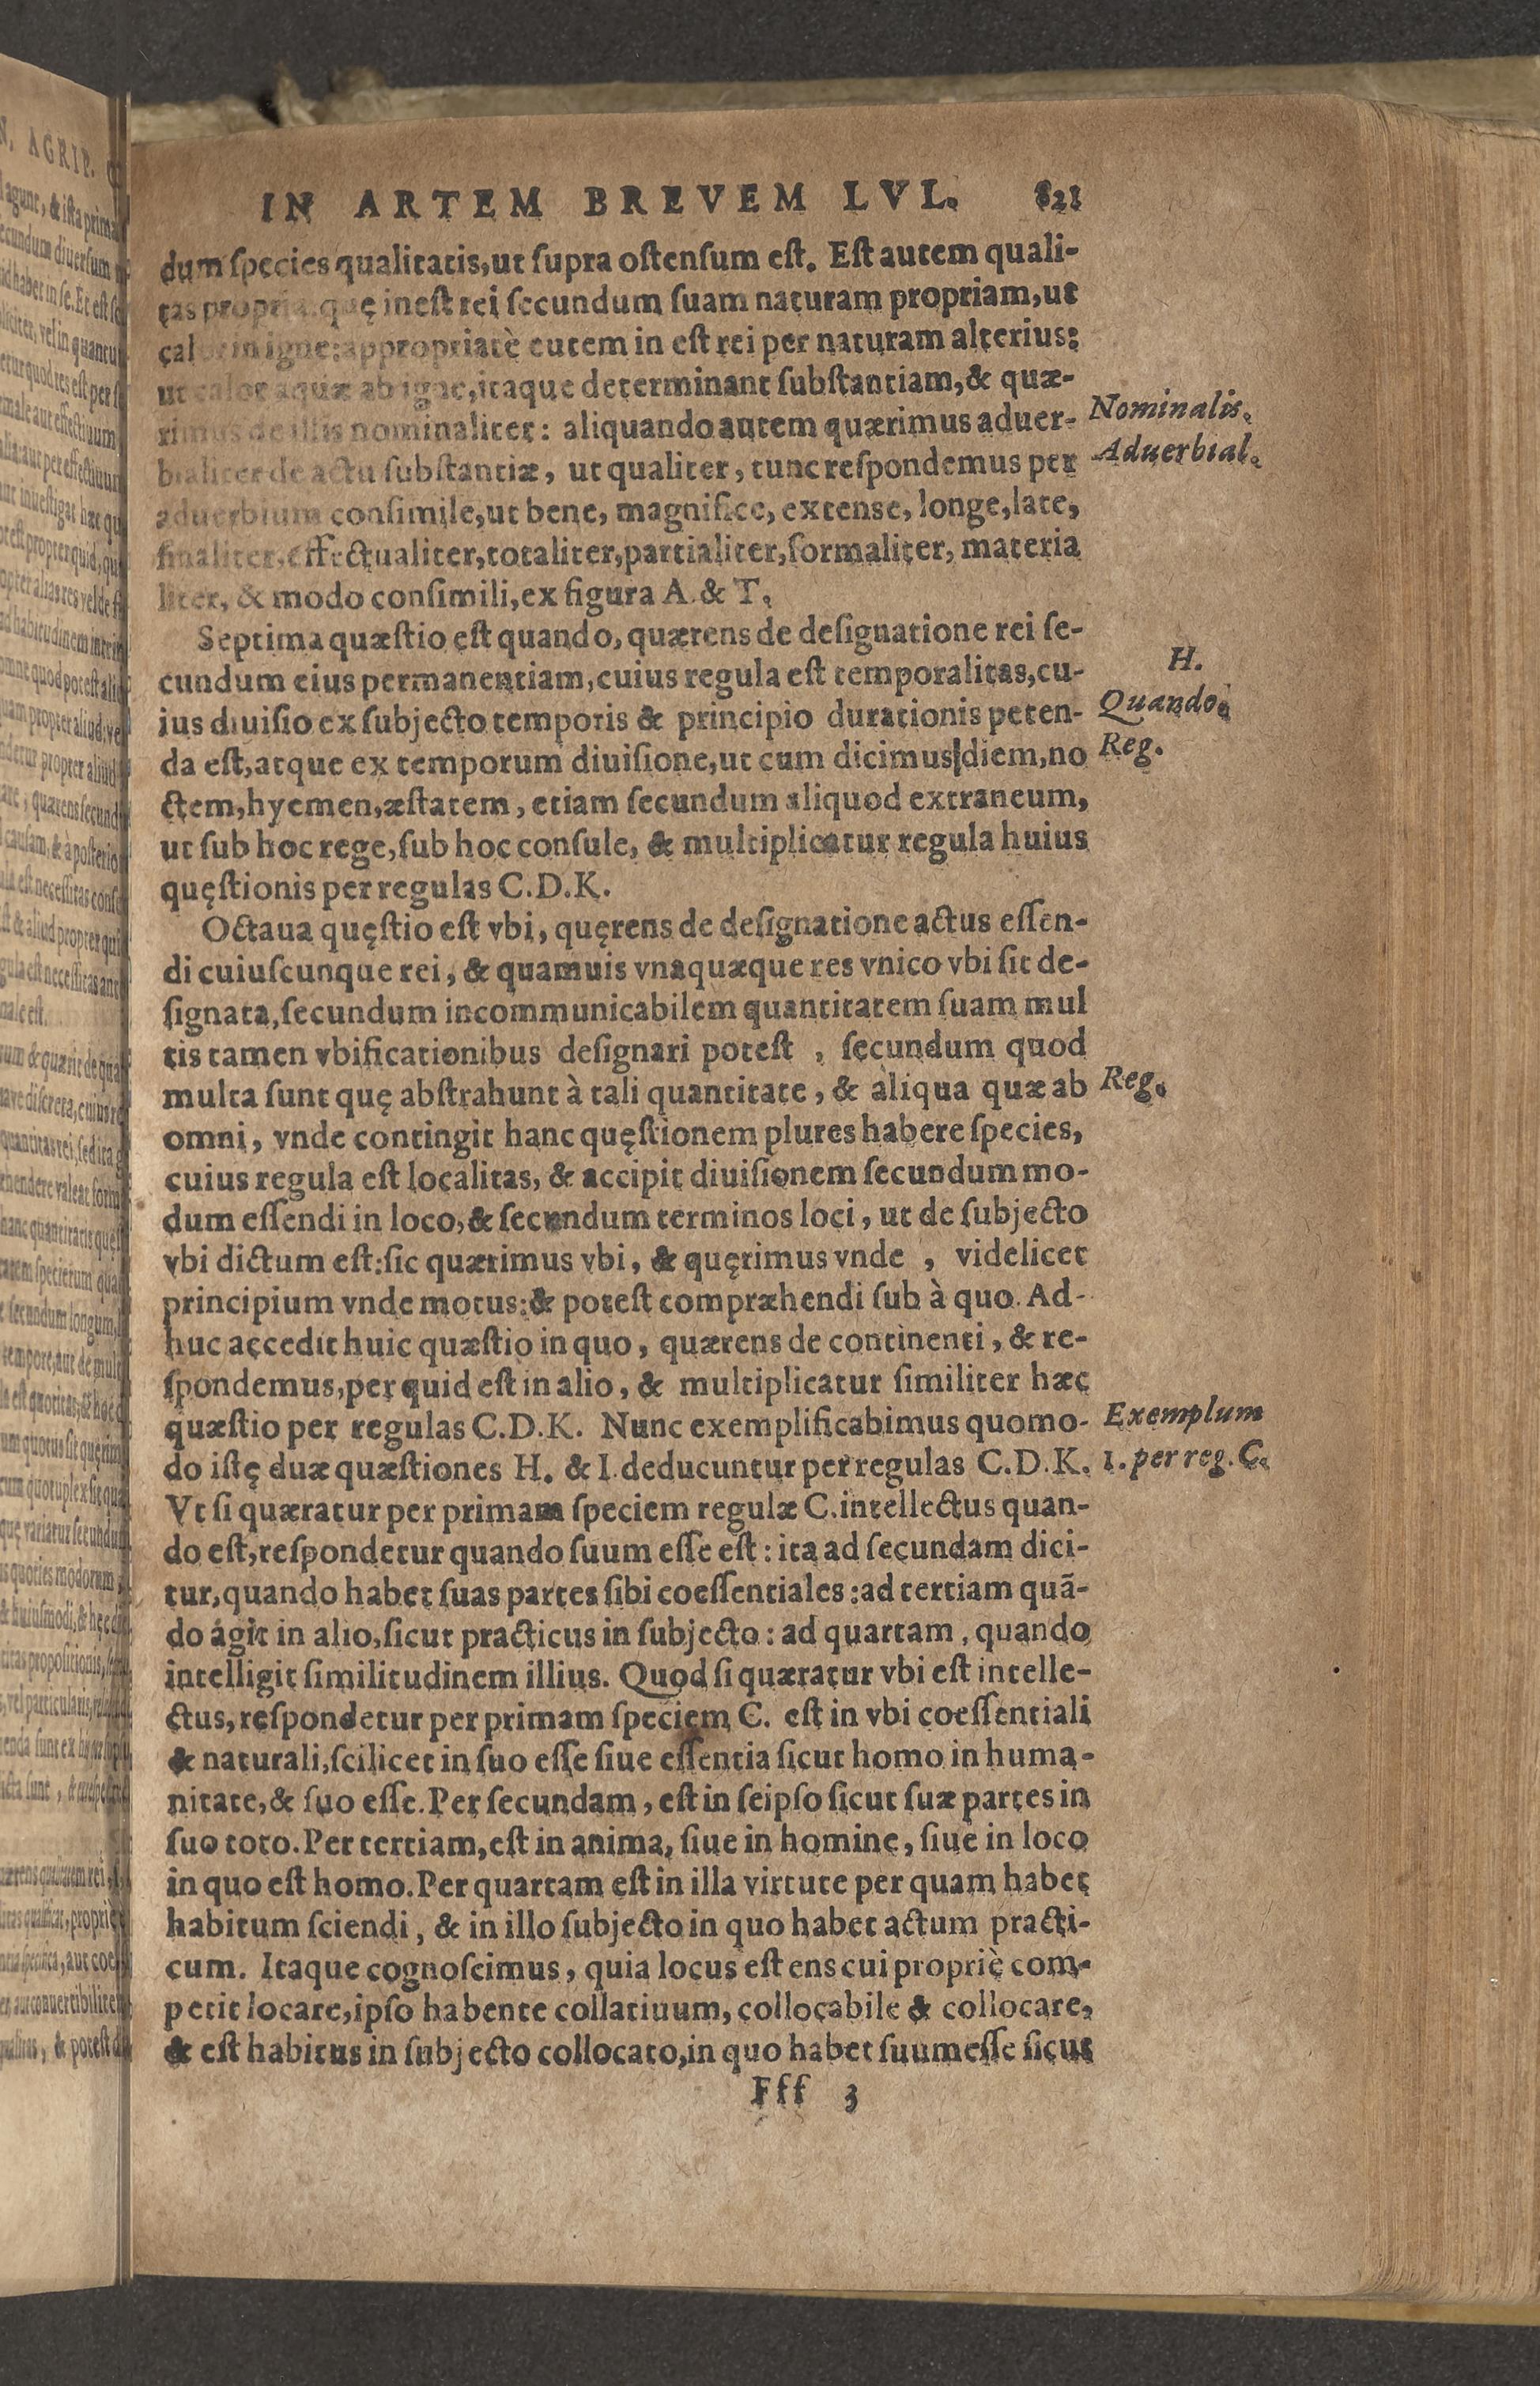 IN ARTEM BREVEM LVL. 821
dum ſpecies qualitatis,ut ſupra oſtenſum eſt. Eſt autem quali-
tas propria quę ineſt rei ſecundum ſuam naturam propriam,ut
calor in igne:appropriatè eutem in eſt rei per naturam alterius:
ut calor aquæ ab igne,itaque determinant ſubſtantiam,& quæ-
rimus de illis nominaliter: aliquando autem quærimus aduer-
Nominalis.
bialiter de actu ſubſtantiæ, ut qualiter, tunc reſpondemus per
Aduerbial.
aduerbium conſimile,ut bene, magnifice, extense, longe,late,
finaliter,effectualiter,totaliter,partialiter,formaliter, materia
liter, & modo conſimili,ex figura A. & T.
Septima quæſtio eſt quando, quærens de deſignatione rei ſe-
H.
cundum eius permanentiam,cuius regula eſt temporalitas,cu-
ius diuiſio ex ſubjecto temporis & principio durationis peten-
Quando.
da eſt,atque ex temporum diuiſione,ut cum dicimus|diem,no
Reg.
ctem,hyemen,æſtatem, etiam ſecundum aliquod extraneum,
ut ſub hoc rege,ſub hoc conſule, & multiplicatur regula huius
quęſtionis per regulas C.D.K.
Octaua quęſtio eſt vbi, quęrens de deſignatione actus eſſen-
di cuiuſcunque rei, & quamuis vnaquæque res vnico vbi ſit de-
ſignata,ſecundum incommunicabilem quantitatem ſuam mul
tis tamen vbificationibus deſignari poteſt , ſecundum quod
multa ſunt quę abſtrahunt à tali quantitate, & aliqua quæ ab
Reg.
omni, vnde contingit hanc quęſtionem plures habere ſpecies,
cuius regula eſt localitas, & accipit diuiſionem ſecundum mo-
dum eſſendi in loco,& ſecundum terminos loci, ut de ſubjecto
vbi dictum eſt:ſic quærimus vbi, & quęrimus vnde , videlicet
principium vnde motus:& poteſt compræhendi ſub à quo. Ad-
huc accedit huic quæſtio in quo, quærens de continenti, & re-
ſpondemus,per quid eſt in alio, & multiplicatur ſimiliter hæc
quæſtio per regulas C.D.K. Nunc exemplificabimus quomo-
Exemplum
do iſtę duæ quæſtiones H. & I. deducuntur per regulas C.D.K.
1. per reg. C.
Vt ſi quæratur per primam ſpeciem regulæ C.intellectus quan-
do eſt,reſpondetur quando ſuum eſſe eſt: ita ad ſecundam dici-
tur,quando habet ſuas partes ſibi coeſſentiales:ad tertiam quã-
do ágit in alio,ſicut practicus in ſubjecto: ad quartam , quando
intelligit ſimilitudinem illius. Quod ſi quæratur vbi eſt intelle-
ctus, reſpondetur per primam ſpeciem C. eſt in vbi coeſſentiali
& naturali,ſcilicet in ſuo eſſe ſiue eſſentia ſicut homo in huma-
nitate,& ſuo eſſe. Per ſecundam, eſt in ſeipſo ſicut ſuæ partes in
ſuo toto. Per tertiam,eſt in anima, ſiue in homine, ſiue in loco
in quo eſt homo. Per quartam eſt in illa virtute per quam habet
habitum ſciendi, & in illo ſubjecto in quo habet actum practi-
cum. Itaque cognoſcimus, quia locus eſt ens cui propriè com-
petit locare,ipſo habente collatiuum, collocabile & collocare,
& eſt habitus in ſubjecto collocato,in quo habet ſuum eſſe ſicut
Fff 3